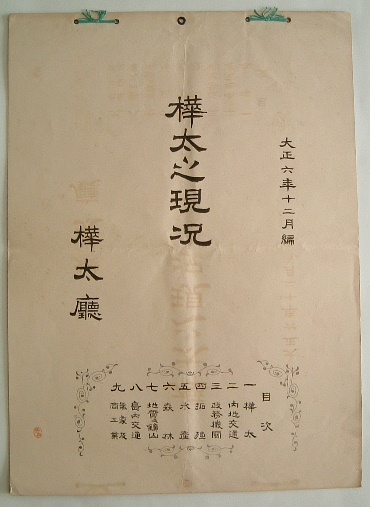 大正六年十二月編
樺太之現況
樺太廳
目次
一 樺太
二 内地交通
三 政務機關
四 拓殖
五 水產
六 森林
七 地質及鑛山
八 島内交通
九 商工業